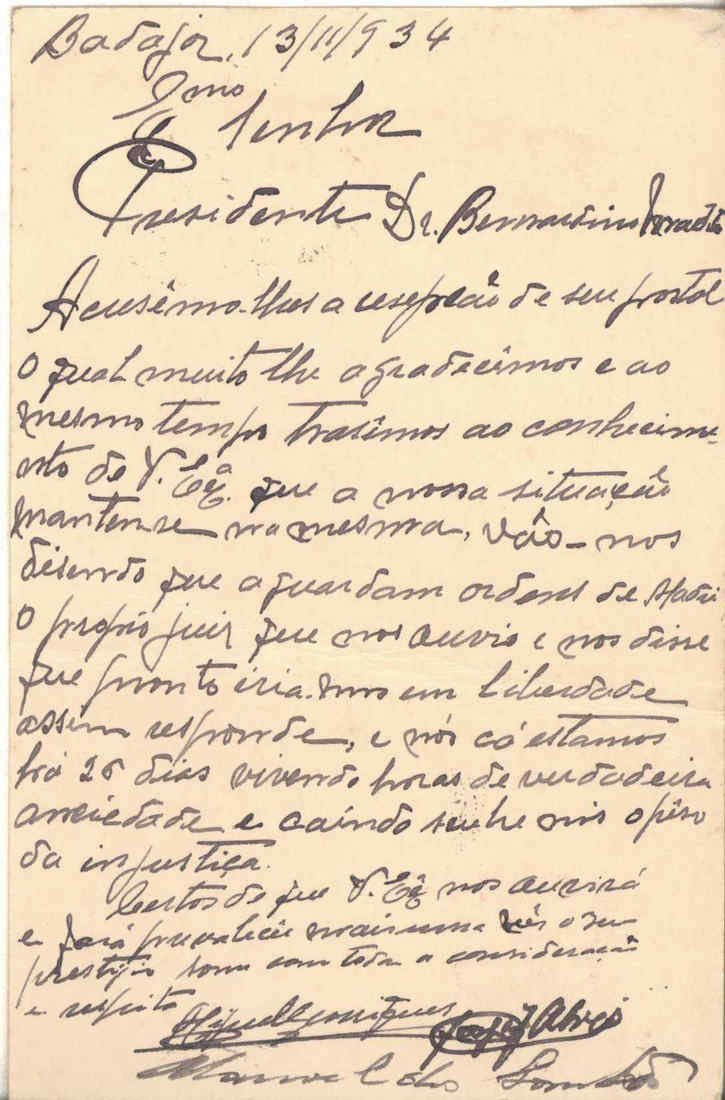 Badajoz, 13/11/934
Exmo Senhor
Presidente Dr. Bernardino Machado
Acusâmo-lhes a resepção de seu postal
O qual muito lhe agradecêmos e ao
mesmo tempo trasêmos ao conhecime-
nto de V. Exª. que a nossa situação
mantem-se na mesma, vão-nos
disendo que aguardam ordens de Madri
O proprio juiz que nos ouvio e nos disse
que pronto iria-mos em liberdade
assim responde, e nós cá estamos
há 26 dias vivendo horas de verdadeira
anciedade e caíndo sobre nós o pêso
da injustiça.
Certos de que V. Exª nos ouvirá
e fará prevalecêr mais uma vês o seu
prestijio somos com toda a consideração
e respeito
Rodrigues
Alves
Manoel